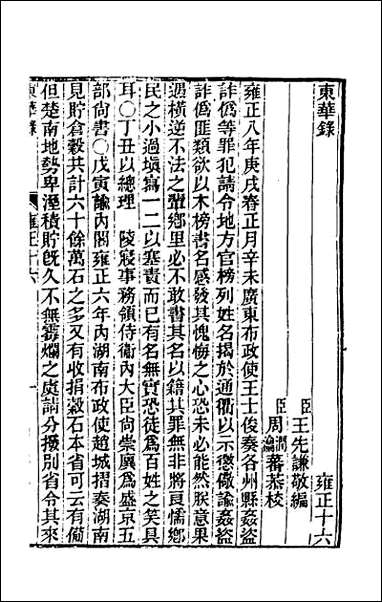 東華錄
雍正十六
臣王先謙敬編
臣周潤蕃恭校
瀹
雍正八年庚戌春正月辛未廣東布政使王士俊奏各州縣姦盜
詐僞等罪犯請令地方官榜列姓名揭於通衢以示懲儆諭姦盜
詐僞匪類欲以木榜書名感發其愧悔之心恐未必能然朕意果
遇橫逆不法之輩鄉里必不敢書其名以籍其罪無非將頁懦鄉
民之小過塡寫一二以塞責而已有名無實恐徒爲百姓之笑具
耳○丁丑以總理 陵寢事務領侍衞內大臣尙崇廙爲盛京五
部尙書○戊寅諭內閣雍正六年內湖南布政使趙城摺奏湖南
見貯倉穀共計六十餘萬石之多又有收捐穀石本省可云有備
但楚南地勢卑溼積貯旣久不無霉爛之處請分撥別省令其來
東華錄
雍正十六
一